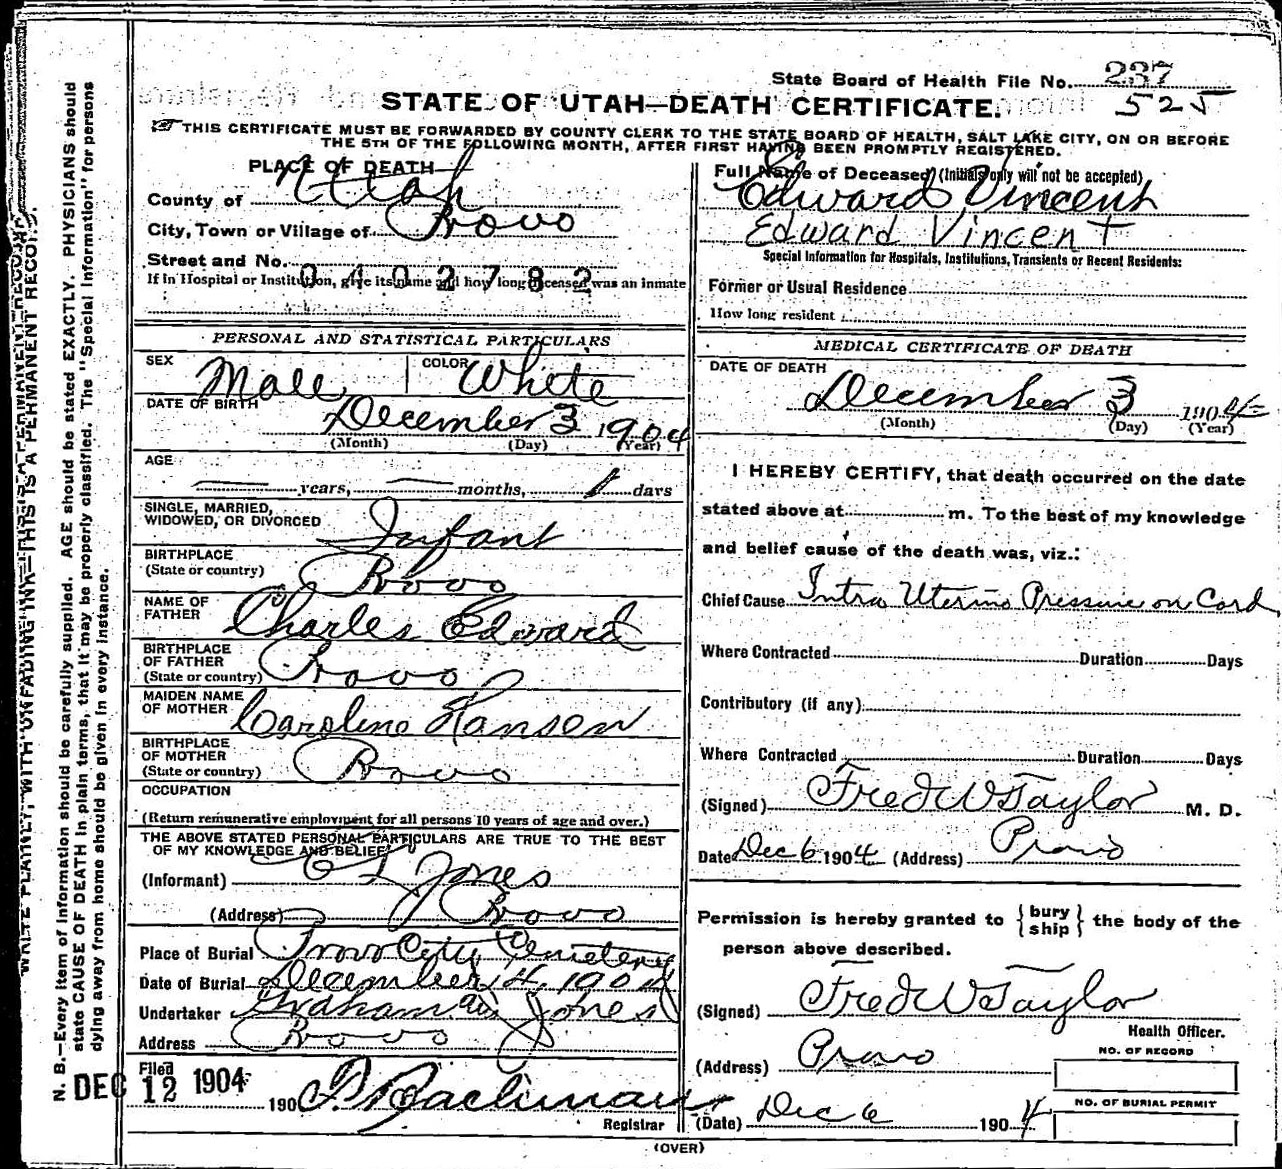 State Board of Health File No. 237
525
STATE OF UTAH—DEATH CERTIFICATE.
THIS CERTIFICATE MUST BE FORWARDED BY COUNTY CLERK TO THE STATE BOARD OF HEALTH, SALT LAKE CITY, ON OR BEFORE
THE 5TH OF THE FOLLOWING MONTH, AFTER FIRST HAVING BEEN PROMPTLY REGISTERED.
PLACE OF DEATH
County of Utah
City, Town or Village of Provo
Street and No.
0402782
If In Hospital or Institution, give its name and how long deceased was an inmate
PERSONAL AND STATISTICAL PARTICULARS
SEX Male COLOR White
DATE OF BIRTH
December 3 1904
(Month) (Day) (Year)
AGE
years, months, 1 days
SINGLE, MARRIED,
WIDOWED, OR DIVORCED Infant
BIRTHPLACE
(State or country) Provo
NAME OF
FATHER Charles Edward
BIRTHPLACE
OF FATHER
(State or country) Provo
MAIDEN NAME
OF MOTHER Caroline Hansen
BIRTHPLACE
OF MOTHER
(State or country) Provo
OCCUPATION
(Return remunerative employment for all persons 10 years of age and over.)
THE ABOVE STATED PERSONAL PARTICULARS ARE TRUE TO THE BEST
OF MY KNOWLEDGE AND BELIEF
(Informant) Jones
(Address) Provo
Place of Burial Provo City Cemetery
Date of Burial December 4, 1904
Undertaker Graham Jones
Address Provo
Filed
DEC 12 1904
190
Registrar
Full Name of Deceased (Initials only will not be accepted)
Edward Vincent
Edward Vincent
Special Information for Hospitals, Institutions, Transients or Recent Residents:
Former or Usual Residence
How long resident
MEDICAL CERTIFICATE OF DEATH
DATE OF DEATH
December 3 1904
(Month) (Day) (Year)
I HEREBY CERTIFY, that death occurred on the date
stated above at m. To the best of my knowledge
and belief cause of the death was, viz.:
Chief Cause Intra Uterine Pressure on Cord
Where Contracted Duration Days
Contributory (if any)
Where Contracted Duration Days
(Signed) Fred W Taylor M. D.
Date Dec 6 1904 (Address) Provo
Permission is hereby granted to {bury
ship} the body of the
person above described.
(Signed) Fred W Taylor
Health Officer.
(Address) Provo
NO. OF RECORD
NO. OF BURIAL PERMIT
(Date) Dec 6 1904
(OVER)
WRITE PLAINLY, WITH UNFADING INK—THIS IS A PERMANENT RECORD.
N. B.—Every item of information should be carefully supplied. AGE should be stated EXACTLY. PHYSICIANS should
state CAUSE OF DEATH in plain terms, that it may be properly classified. The "Special Information" for persons
dying away from home should be given in every instance.